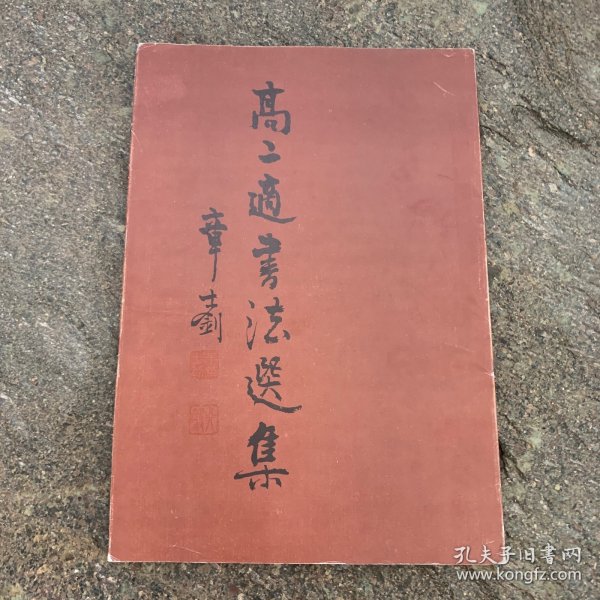 高二適書法選集
章士釗
孔夫子旧書网
www.kongfz.com